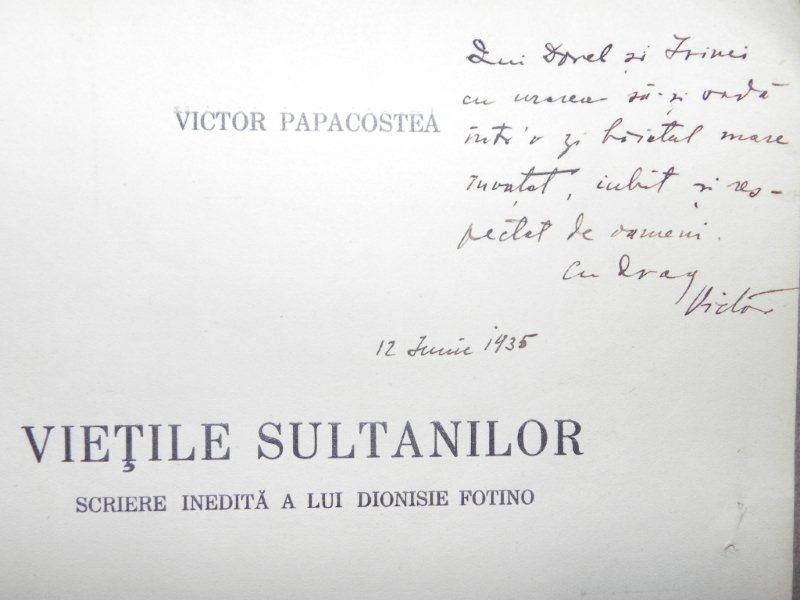 Lui Dorel și Irinei
cu urarea să-și vadă
într'o zi băiatul mare
învățat, iubit și res-
pectat de oameni.
Cu drag
Victor
VICTOR PAPACOSTEA
12 Iunie 1935
VIEŢILE SULTANILOR
SCRIERE INEDITĂ A LUI DIONISIE FOTINO